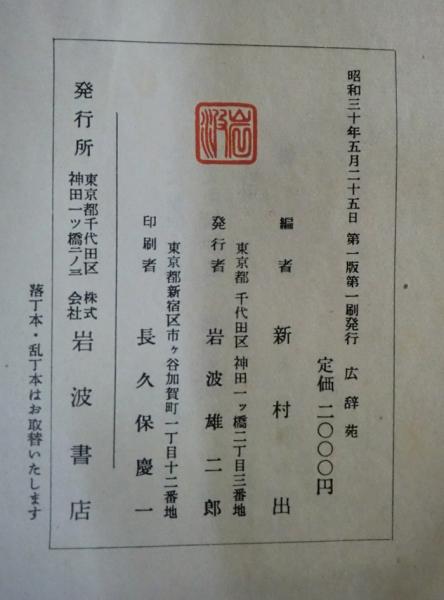 昭和三十年五月二十五日 第一版第一刷発行 広辞苑
定価 二〇〇〇円
編者 新村出
東京都千代田区神田一ッ橋二丁目三番地
発行者 岩波雄二郎
東京都新宿区市ヶ谷加賀町一丁目十二番地
印刷者 長久保慶一
岩波
発行所 東京都千代田区神田一ッ橋二ノ三 株式会社 岩波書店
落丁本・乱丁本はお取替いたします